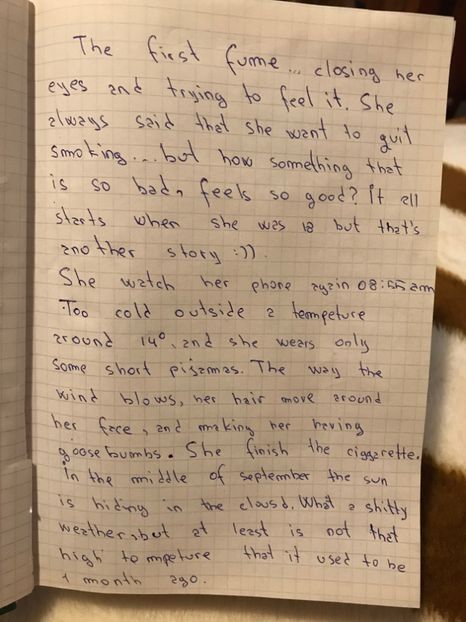 The first fume... closing her
eyes and trying to feel it. She
always said that she want to quit
smoking... but how something that
is so bad, feels so good? It all
starts when she was 18 but that's
another story :)).
She watch her phone again 08:55 am
Too cold outside a tempeture
around 14°, and she wears only
some short pijamas. The way the
wind blows, her hair move around
her face, and making her having
goosebumbs. She finish the ciggarette.
In the middle of september the sun
is hiding in the clousd. What a shitty
weather, but at least is not that
high tempeture that it used to be
1 month ago.